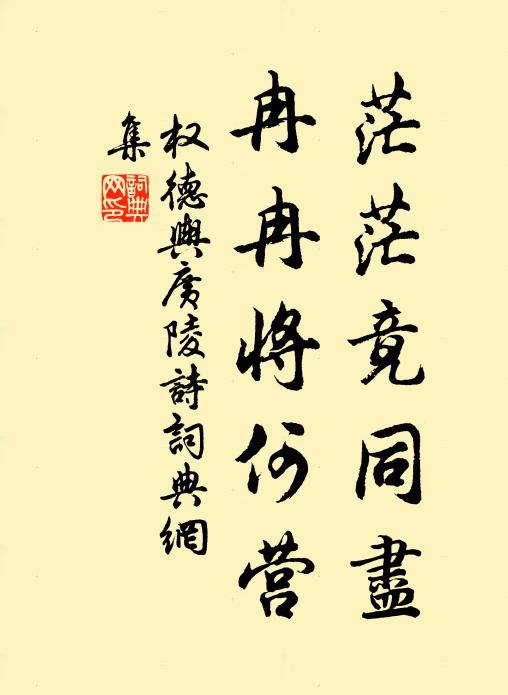 茫茫竟同盡
冉冉將何营
权德輿廣陵詩詞典網
集
詞典
网印